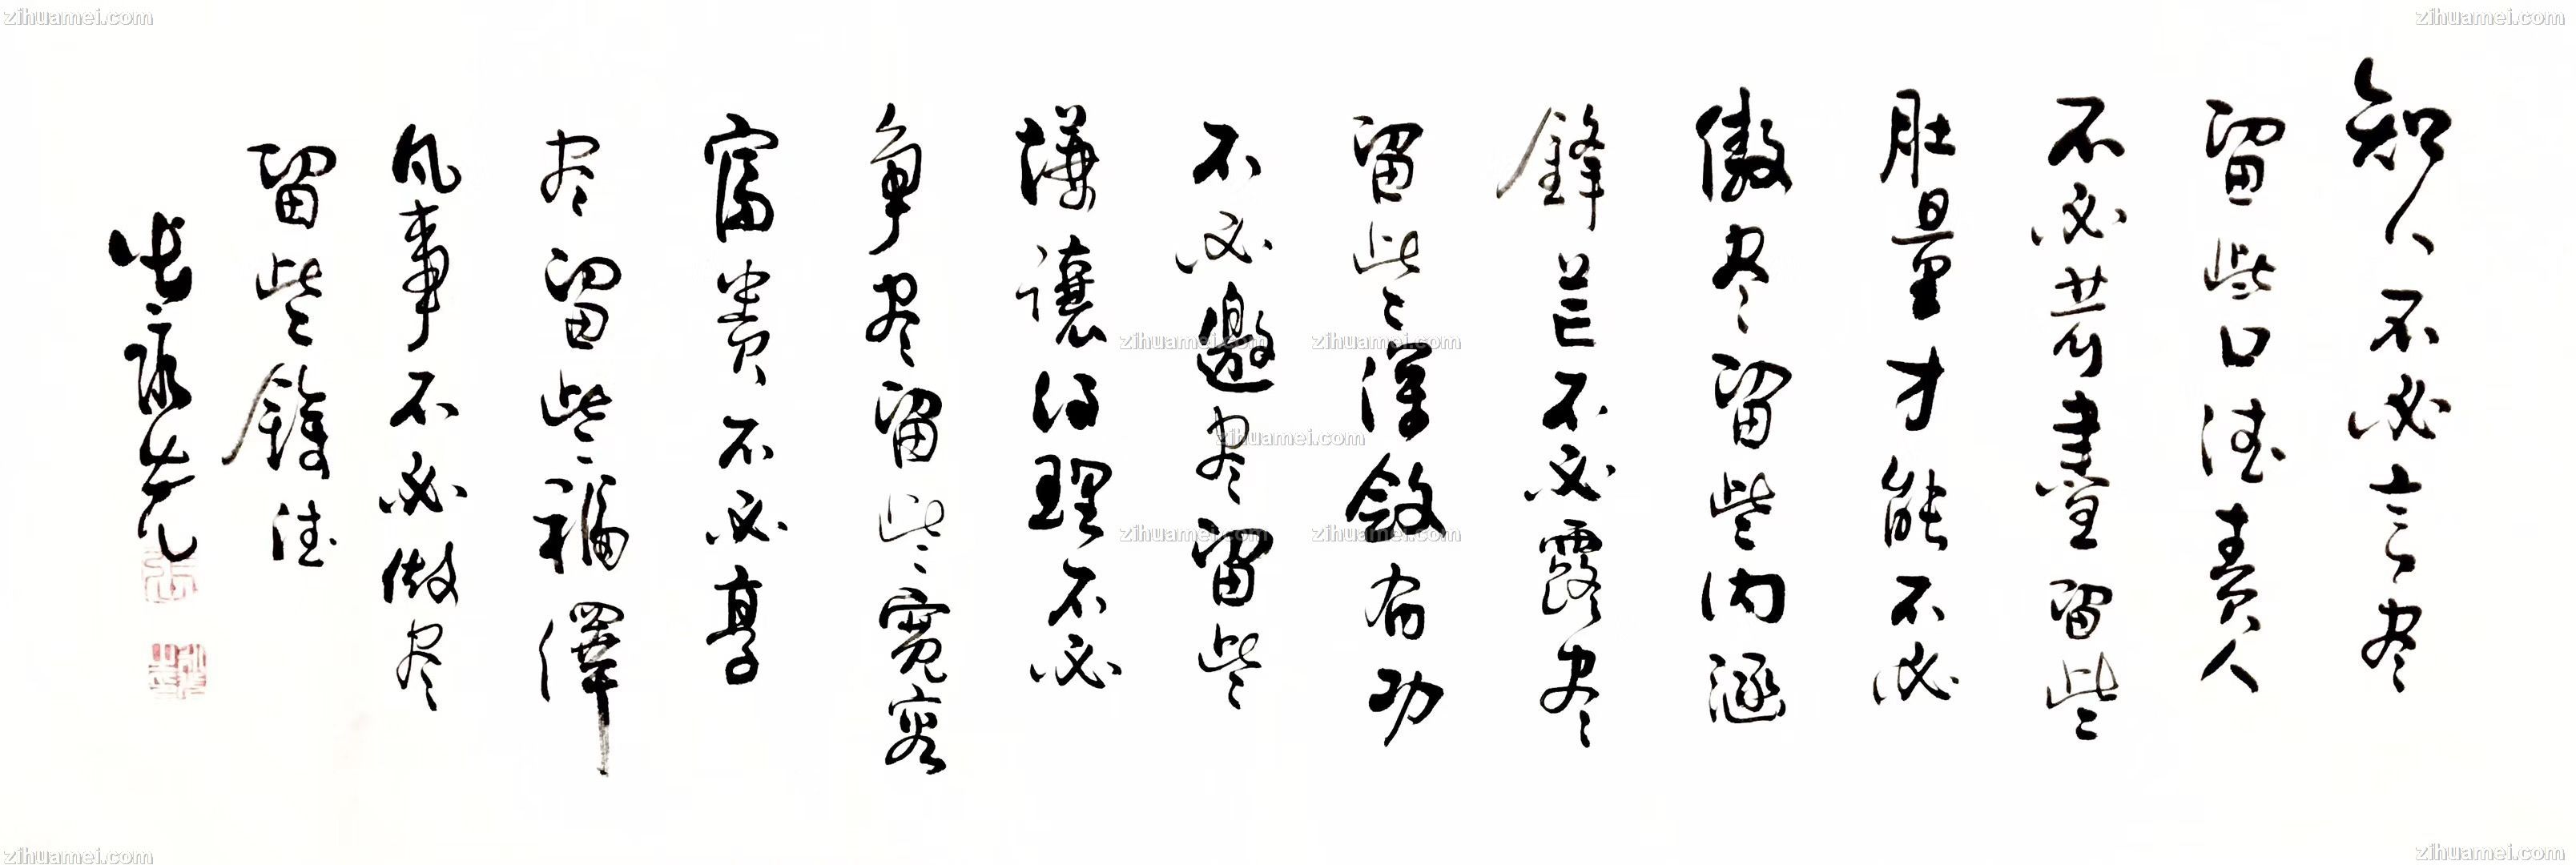 知人不必言尽
留些口德责人
不必苛盡留些
肚量才能不必
傲尽留些内涵
鋒芒不必露尽
留些深敛有功
不必邀尽留些
謙讓得理不必
争尽留些寬容
富贵不必享
尽留些福澤
凡事不必做尽
留些餘德
zihuamei.com
zihuamei.com
zihuamei.com
zihuamei.com
zihuamei.com
zihuamei.com
zihuamei.com
zihuamei.com
zihuamei.com